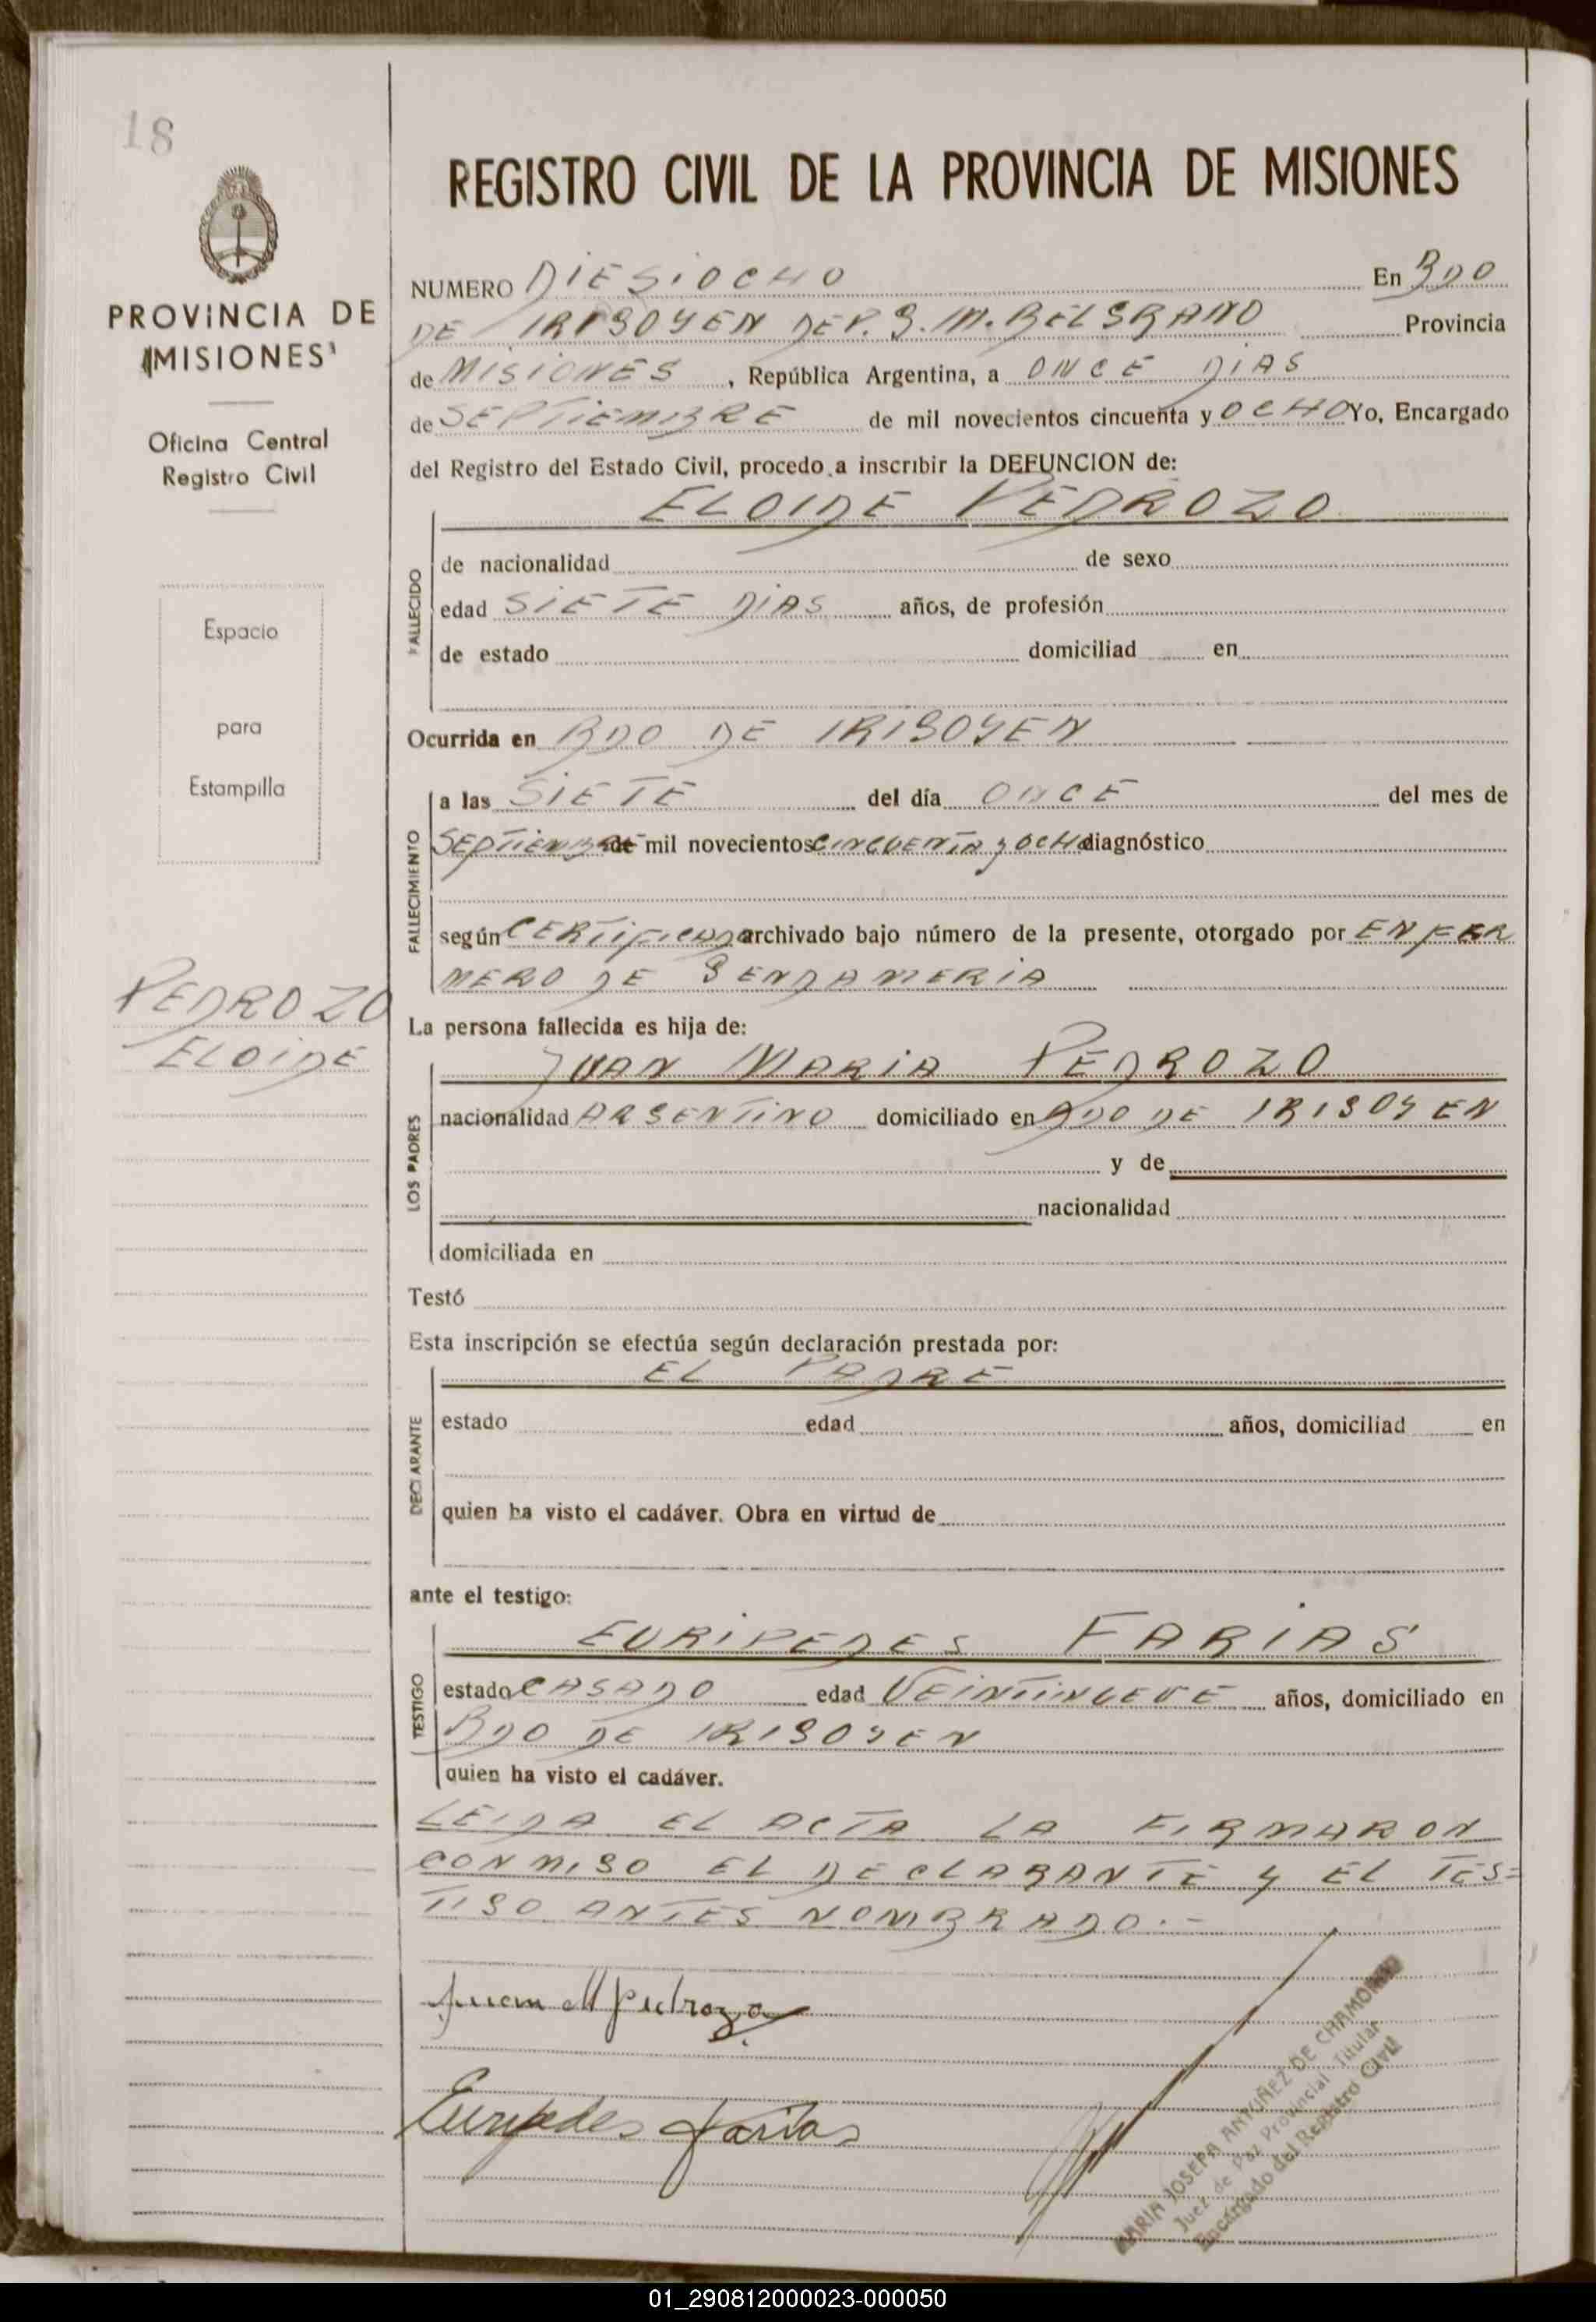 18
PROVINCIA DE
MISIONES
Oficina Central
Registro Civil
Espacio
para
Estampilla
PEDROZO
ELOIDE
REGISTRO CIVIL DE LA PROVINCIA DE MISIONES
NUMERO DIESIOCHO En BDO
DE IRIGOYEN DEP. G. M. BELGRANO Provincia
de MISIONES, República Argentina, a ONCE DIAS
de SEPTIEMBRE de mil novecientos cincuenta y OCHO Yo, Encargado
del Registro del Estado Civil, procedo a inscribir la DEFUNCION de:
ELOIDE PEDROZO
FALLECIDO
de nacionalidad de sexo
edad SIETE DIAS años, de profesión
de estado domiciliad en
Ocurrida en BDO DE IRIGOYEN
FALLECIMIENTO
a las SIETE del día ONCE del mes de
SEPTIEMBRE de mil novecientos CINCUENTA Y OCHO diagnóstico
según CERTIFICADO archivado bajo número de la presente, otorgado por ENFER
MERO DE GENDAMERIA
La persona fallecida es hija de:
JUAN MARIA PEDROZO
LOS PADRES
nacionalidad ARGENTINO domiciliado en BDO DE IRIGOYEN
y de
nacionalidad
domiciliada en
Testó
Esta inscripción se efectúa según declaración prestada por:
EL PADRE
DECLARANTE
estado edad años, domiciliad en
quien ha visto el cadáver. Obra en virtud de
ante el testigo:
EURIPEDES FARIAS
TESTIGO
estado CASADO edad VEINTINUEVE años, domiciliado en
BDO DE IRIGOYEN
quien ha visto el cadáver.
LEIDA EL ACTA LA FIRMARON
CONMIGO EL DECLARANTE Y EL TES=
TIGO ANTES NOMBRADO.-
Juan M Pedrozo
Euripedes Farias
MARIA JOSEFA ANTUÑEZ DE CHAMORRO
Juez de Paz Provincial Titular
Encargado del Registro Civil
01_290812000023-000050